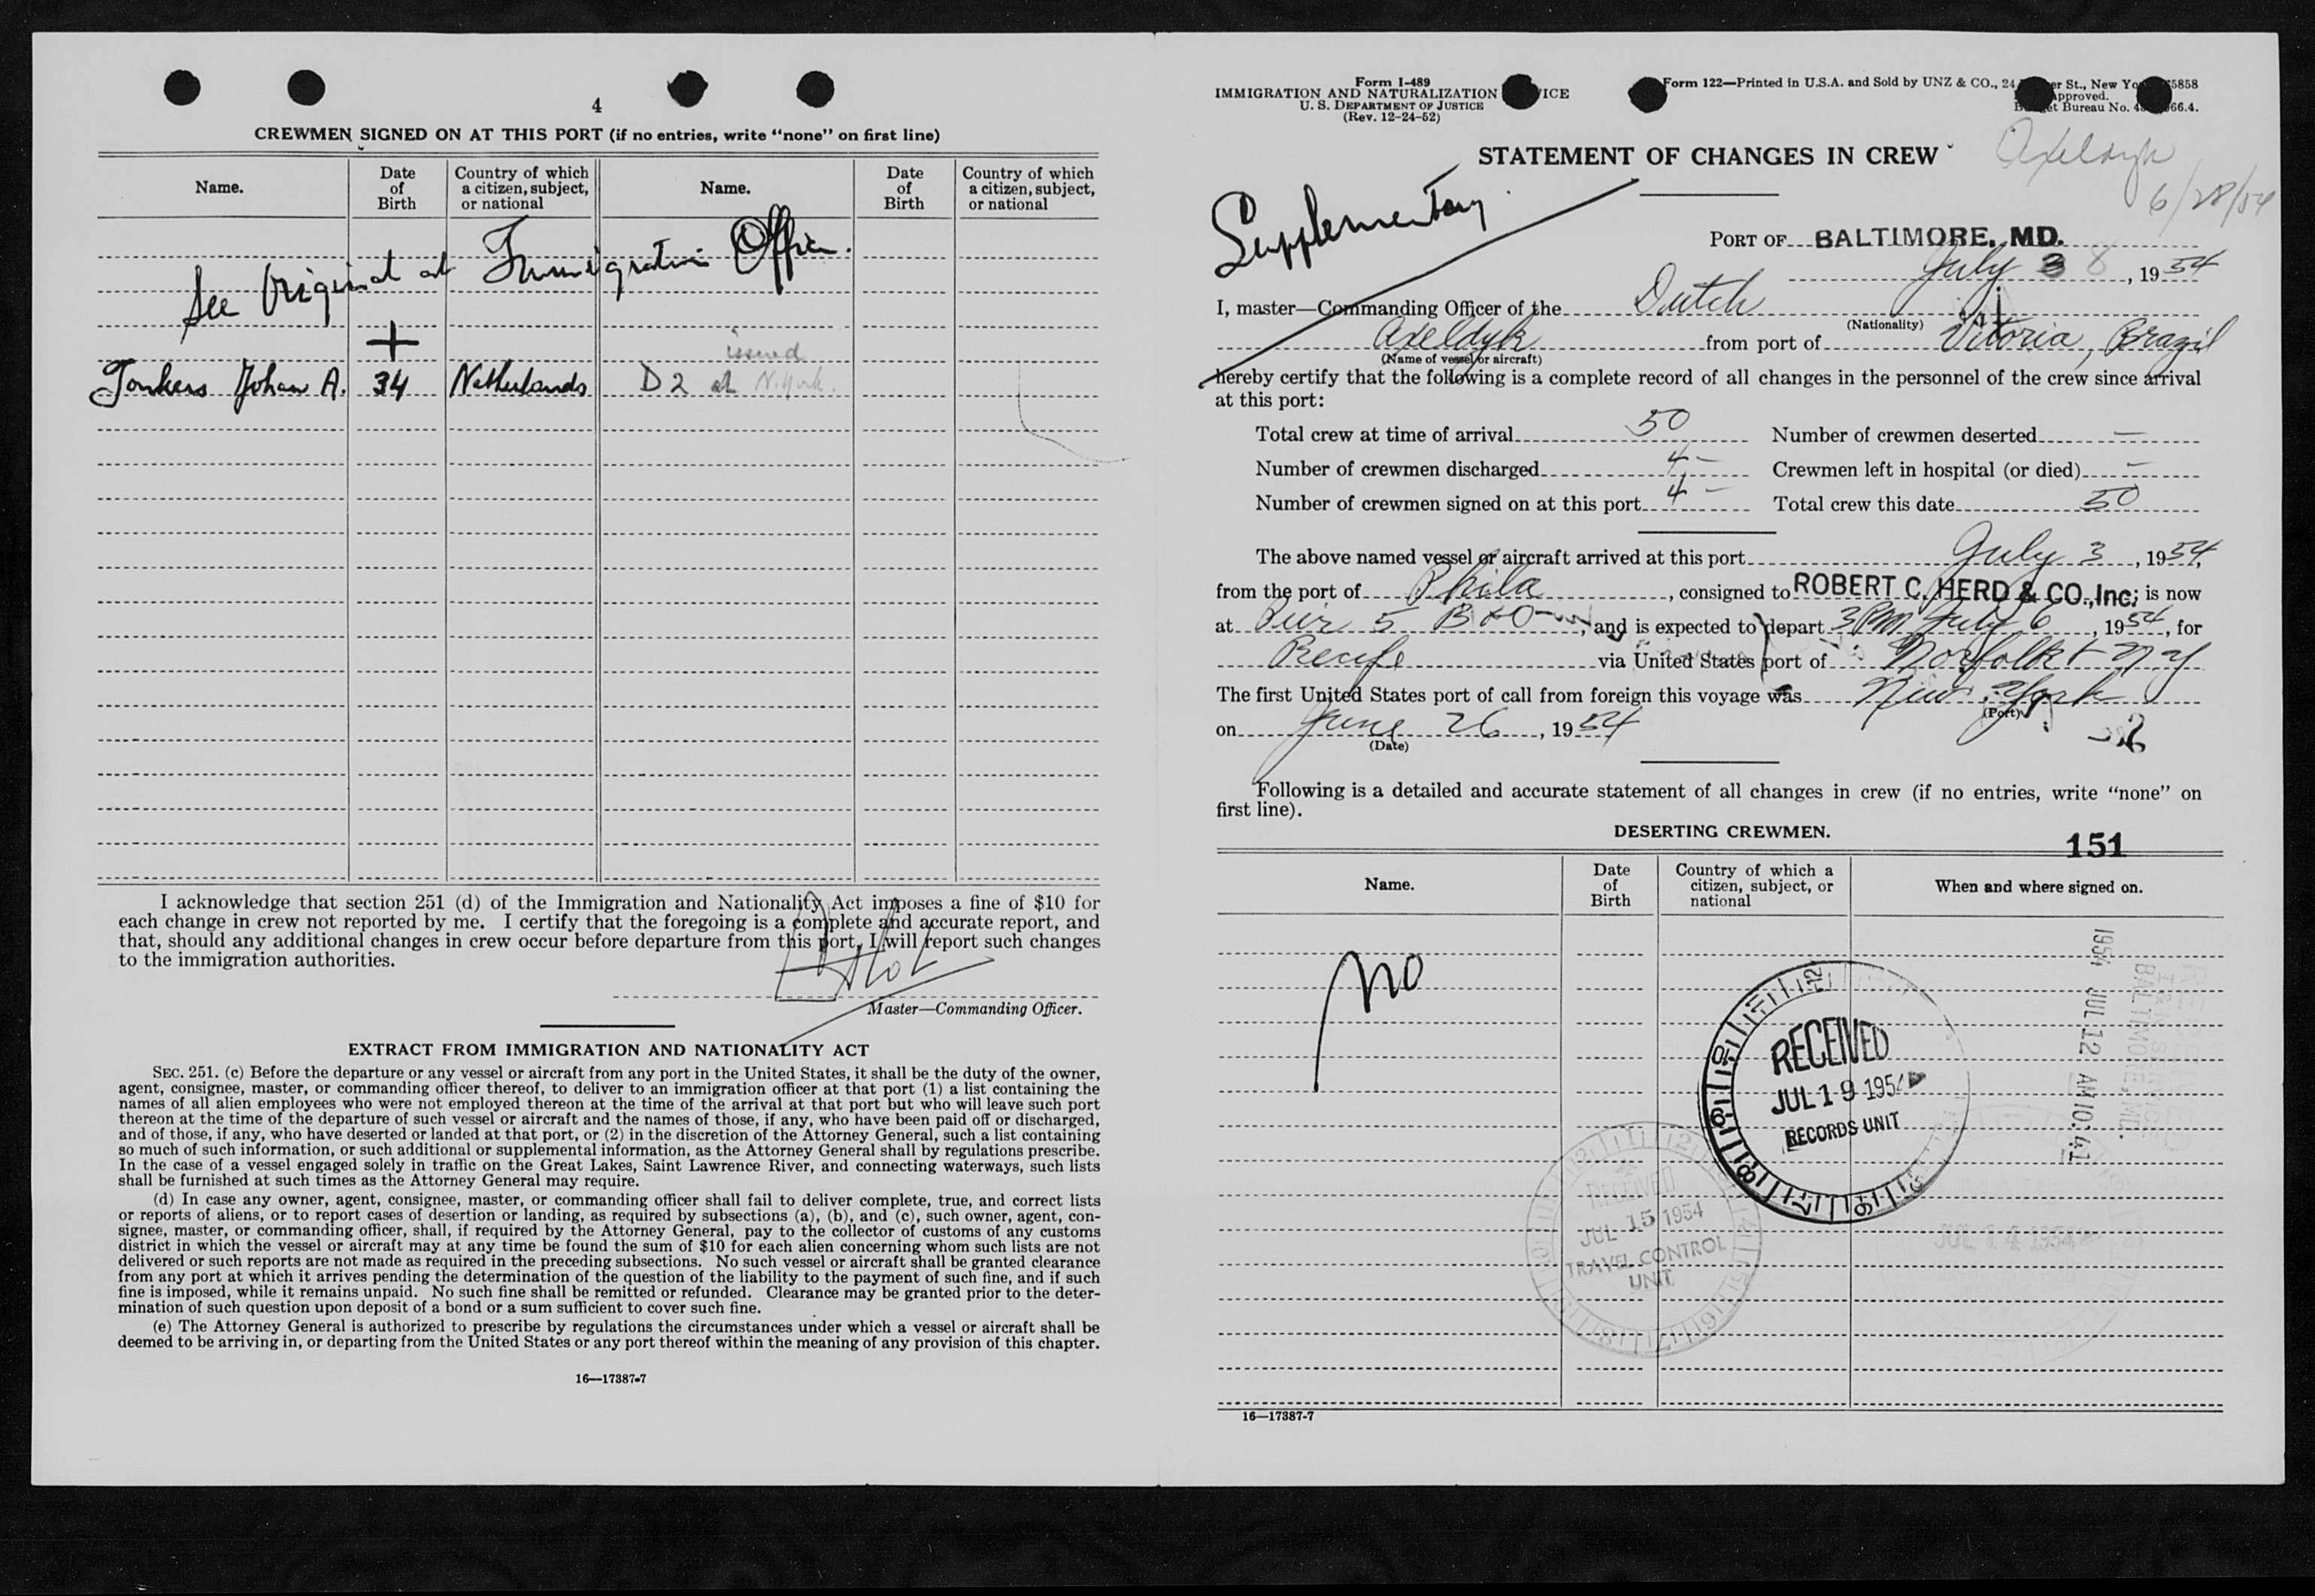 4
CREWMEN SIGNED ON AT THIS PORT (if no entries, write “none” on first line)
Name. Date of Birth Country of which a citizen, subject, or national Name. Date of Birth Country of which a citizen, subject, or national
See Original at Immigration Office.
+
issued
Jonkers Johan A. 34 Netherlands D2 at N.York.
I acknowledge that section 251 (d) of the Immigration and Nationality Act imposes a fine of $10 for
each change in crew not reported by me. I certify that the foregoing is a complete and accurate report, and
that, should any additional changes in crew occur before departure from this port, I will report such changes
to the immigration authorities.
Master—Commanding Officer.
EXTRACT FROM IMMIGRATION AND NATIONALITY ACT
SEC. 251. (c) Before the departure or any vessel or aircraft from any port in the United States, it shall be the duty of the owner,
agent, consignee, master, or commanding officer thereof, to deliver to an immigration officer at that port (1) a list containing the
names of all alien employees who were not employed thereon at the time of the arrival at that port but who will leave such port
thereon at the time of the departure of such vessel or aircraft and the names of those, if any, who have been paid off or discharged,
and of those, if any, who have deserted or landed at that port, or (2) in the discretion of the Attorney General, such a list containing
so much of such information, or such additional or supplemental information, as the Attorney General shall by regulations prescribe.
In the case of a vessel engaged solely in traffic on the Great Lakes, Saint Lawrence River, and connecting waterways, such lists
shall be furnished at such times as the Attorney General may require.
(d) In case any owner, agent, consignee, master, or commanding officer shall fail to deliver complete, true, and correct lists
or reports of aliens, or to report cases of desertion or landing, as required by subsections (a), (b), and (c), such owner, agent, con-
signee, master, or commanding officer, shall, if required by the Attorney General, pay to the collector of customs of any customs
district in which the vessel or aircraft may at any time be found the sum of $10 for each alien concerning whom such lists are not
delivered or such reports are not made as required in the preceding subsections. No such vessel or aircraft shall be granted clearance
from any port at which it arrives pending the determination of the question of the liability to the payment of such fine, and if such
fine is imposed, while it remains unpaid. No such fine shall be remitted or refunded. Clearance may be granted prior to the deter-
mination of such question upon deposit of a bond or a sum sufficient to cover such fine.
(e) The Attorney General is authorized to prescribe by regulations the circumstances under which a vessel or aircraft shall be
deemed to be arriving in, or departing from the United States or any port thereof within the meaning of any provision of this chapter.
16—17387-7
Form I-489
IMMIGRATION AND NATURALIZATION
U. S. DEPARTMENT OF JUSTICE
(Rev. 12-24-52)
Form 122—Printed in U.S.A. and Sold by UNZ & CO., 24 St., New 5858
Approved.
Bureau No. 66.4.
STATEMENT OF CHANGES IN CREW
Axeldyk
6/28/54
Supplementary
PORT OF BALTIMORE, MD.
July 3 8, 1954
I, master—Commanding Officer of the Dutch
(Nationality)
Axeldyk from port of Vitoria, Brazil
(Name of vessel or aircraft)
hereby certify that the following is a complete record of all changes in the personnel of the crew since arrival
at this port:
Total crew at time of arrival 50 Number of crewmen deserted —
Number of crewmen discharged 4 — Crewmen left in hospital (or died) —
Number of crewmen signed on at this port 4 — Total crew this date 50
The above named vessel or aircraft arrived at this port July 3, 1954,
from the port of Phila, consigned to ROBERT C. HERD & CO., Inc; is now
at Pier 5 B&O, and is expected to depart 3PM July 6, 1954, for
Recife via United States port of Norfolk + NY
The first United States port of call from foreign this voyage was New York
(Port)
on June 26, 1954
(Date)
Following is a detailed and accurate statement of all changes in crew (if no entries, write “none” on
first line).
DESERTING CREWMEN.
151
Name. Date of Birth Country of which a citizen, subject, or national When and where signed on.
no
1954 JUL 12 AM 10:41
BALTIMORE, MD.
RECEIVED
JUL 19 1954
RECORDS UNIT
RECEIVED
JUL 15 1954
TRAVEL CONTROL
UNIT
JUL 14 1954
16—17387-7